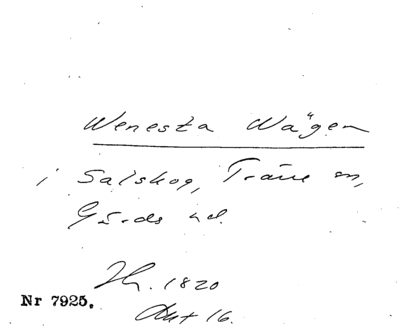 Wenesta Wägen
i Salskog, Träne sn,
Gärds hd.
Th. 1820
Nr 7925.
Akt 16.